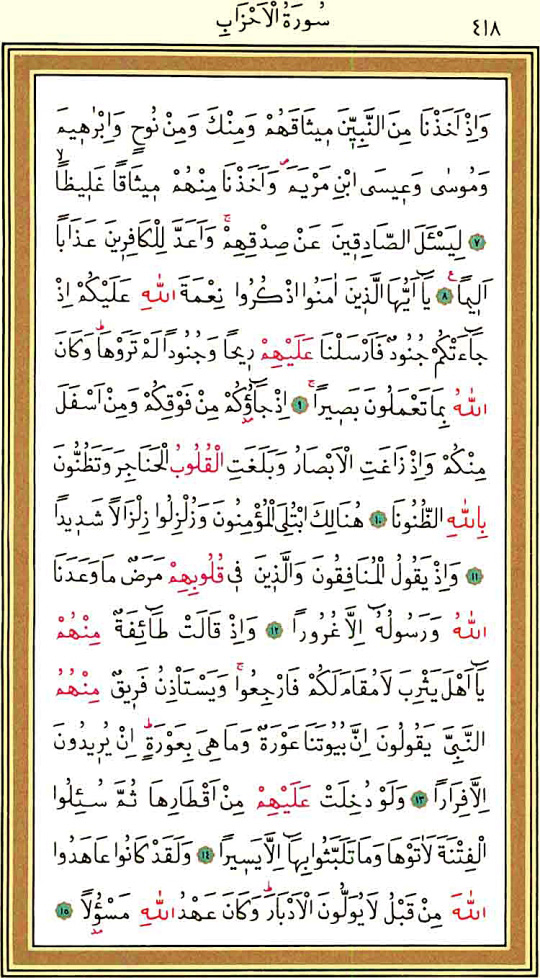 سُورَةُ الْاَحْزَابِ ٤١٨
وَاِذْ اَخَذْنَا مِنَ النَّبِيّ۪نَ م۪يثَاقَهُمْ وَمِنْكَ وَمِنْ نُوحٍ وَاِبْرٰه۪يمَ
وَمُوسٰى وَع۪يسَى ابْنِ مَرْيَمَۖ وَاَخَذْنَا مِنْهُمْ م۪يثَاقًا غَل۪يظًاۙ
﴿٧﴾ لِيَسْـَٔلَ الصَّادِق۪ينَ عَنْ صِدْقِهِمْۚ وَاَعَدَّ لِلْكَافِر۪ينَ عَذَابًا
اَل۪يمًا۟ ﴿٨﴾ يَٓا اَيُّهَا الَّذ۪ينَ اٰمَنُوا اذْكُرُوا نِعْمَةَ اللّٰهِ عَلَيْكُمْ اِذْ
جَٓاءَتْكُمْ جُنُودٌ فَاَرْسَلْنَا عَلَيْهِمْ ر۪يحًا وَجُنُودًا لَمْ تَرَوْهَاۜ وَكَانَ
اللّٰهُ بِمَا تَعْمَلُونَ بَص۪يرًاۚ ﴿٩﴾ اِذْ جَٓاؤُ۫كُمْ مِنْ فَوْقِكُمْ وَمِنْ اَسْفَلَ
مِنْكُمْ وَاِذْ زَاغَتِ الْاَبْصَارُ وَبَلَغَتِ الْقُلُوبُ الْحَنَاجِرَ وَتَظُنُّونَ
بِاللّٰهِ الظُّنُونَا ﴿١٠﴾ هُنَالِكَ ابْتُلِيَ الْمُؤْمِنُونَ وَزُلْزِلُوا زِلْزَالًا شَد۪يدًا
﴿١١﴾ وَاِذْ يَقُولُ الْمُنَافِقُونَ وَالَّذ۪ينَ ف۪ي قُلُوبِهِمْ مَرَضٌ مَا وَعَدَنَا
اللّٰهُ وَرَسُولُهُٓ اِلَّا غُرُورًا ﴿١٢﴾ وَاِذْ قَالَتْ طَٓائِفَةٌ مِنْهُمْ
يَٓا اَهْلَ يَثْرِبَ لَا مُقَامَ لَكُمْ فَارْجِعُواۚ وَيَسْتَأْذِنُ فَر۪يقٌ مِنْهُمُ
النَّبِيَّ يَقُولُونَ اِنَّ بُيُوتَنَا عَوْرَةٌ وَمَا هِيَ بِعَوْرَةٍۜ اِنْ يُر۪يدُونَ
اِلَّا فِرَارًا ﴿١٣﴾ وَلَوْ دُخِلَتْ عَلَيْهِمْ مِنْ اَقْطَارِهَا ثُمَّ سُـئِلُوا
الْفِتْنَةَ لَاٰتَوْهَا وَمَا تَلَبَّثُوا بِهَٓا اِلَّا يَس۪يرًا ﴿١٤﴾ وَلَقَدْ كَانُوا عَاهَدُوا
اللّٰهَ مِنْ قَبْلُ لَا يُوَلُّونَ الْاَدْبَارَۜ وَكَانَ عَهْدُ اللّٰهِ مَسْؤُ۫لًا ﴿١٥﴾